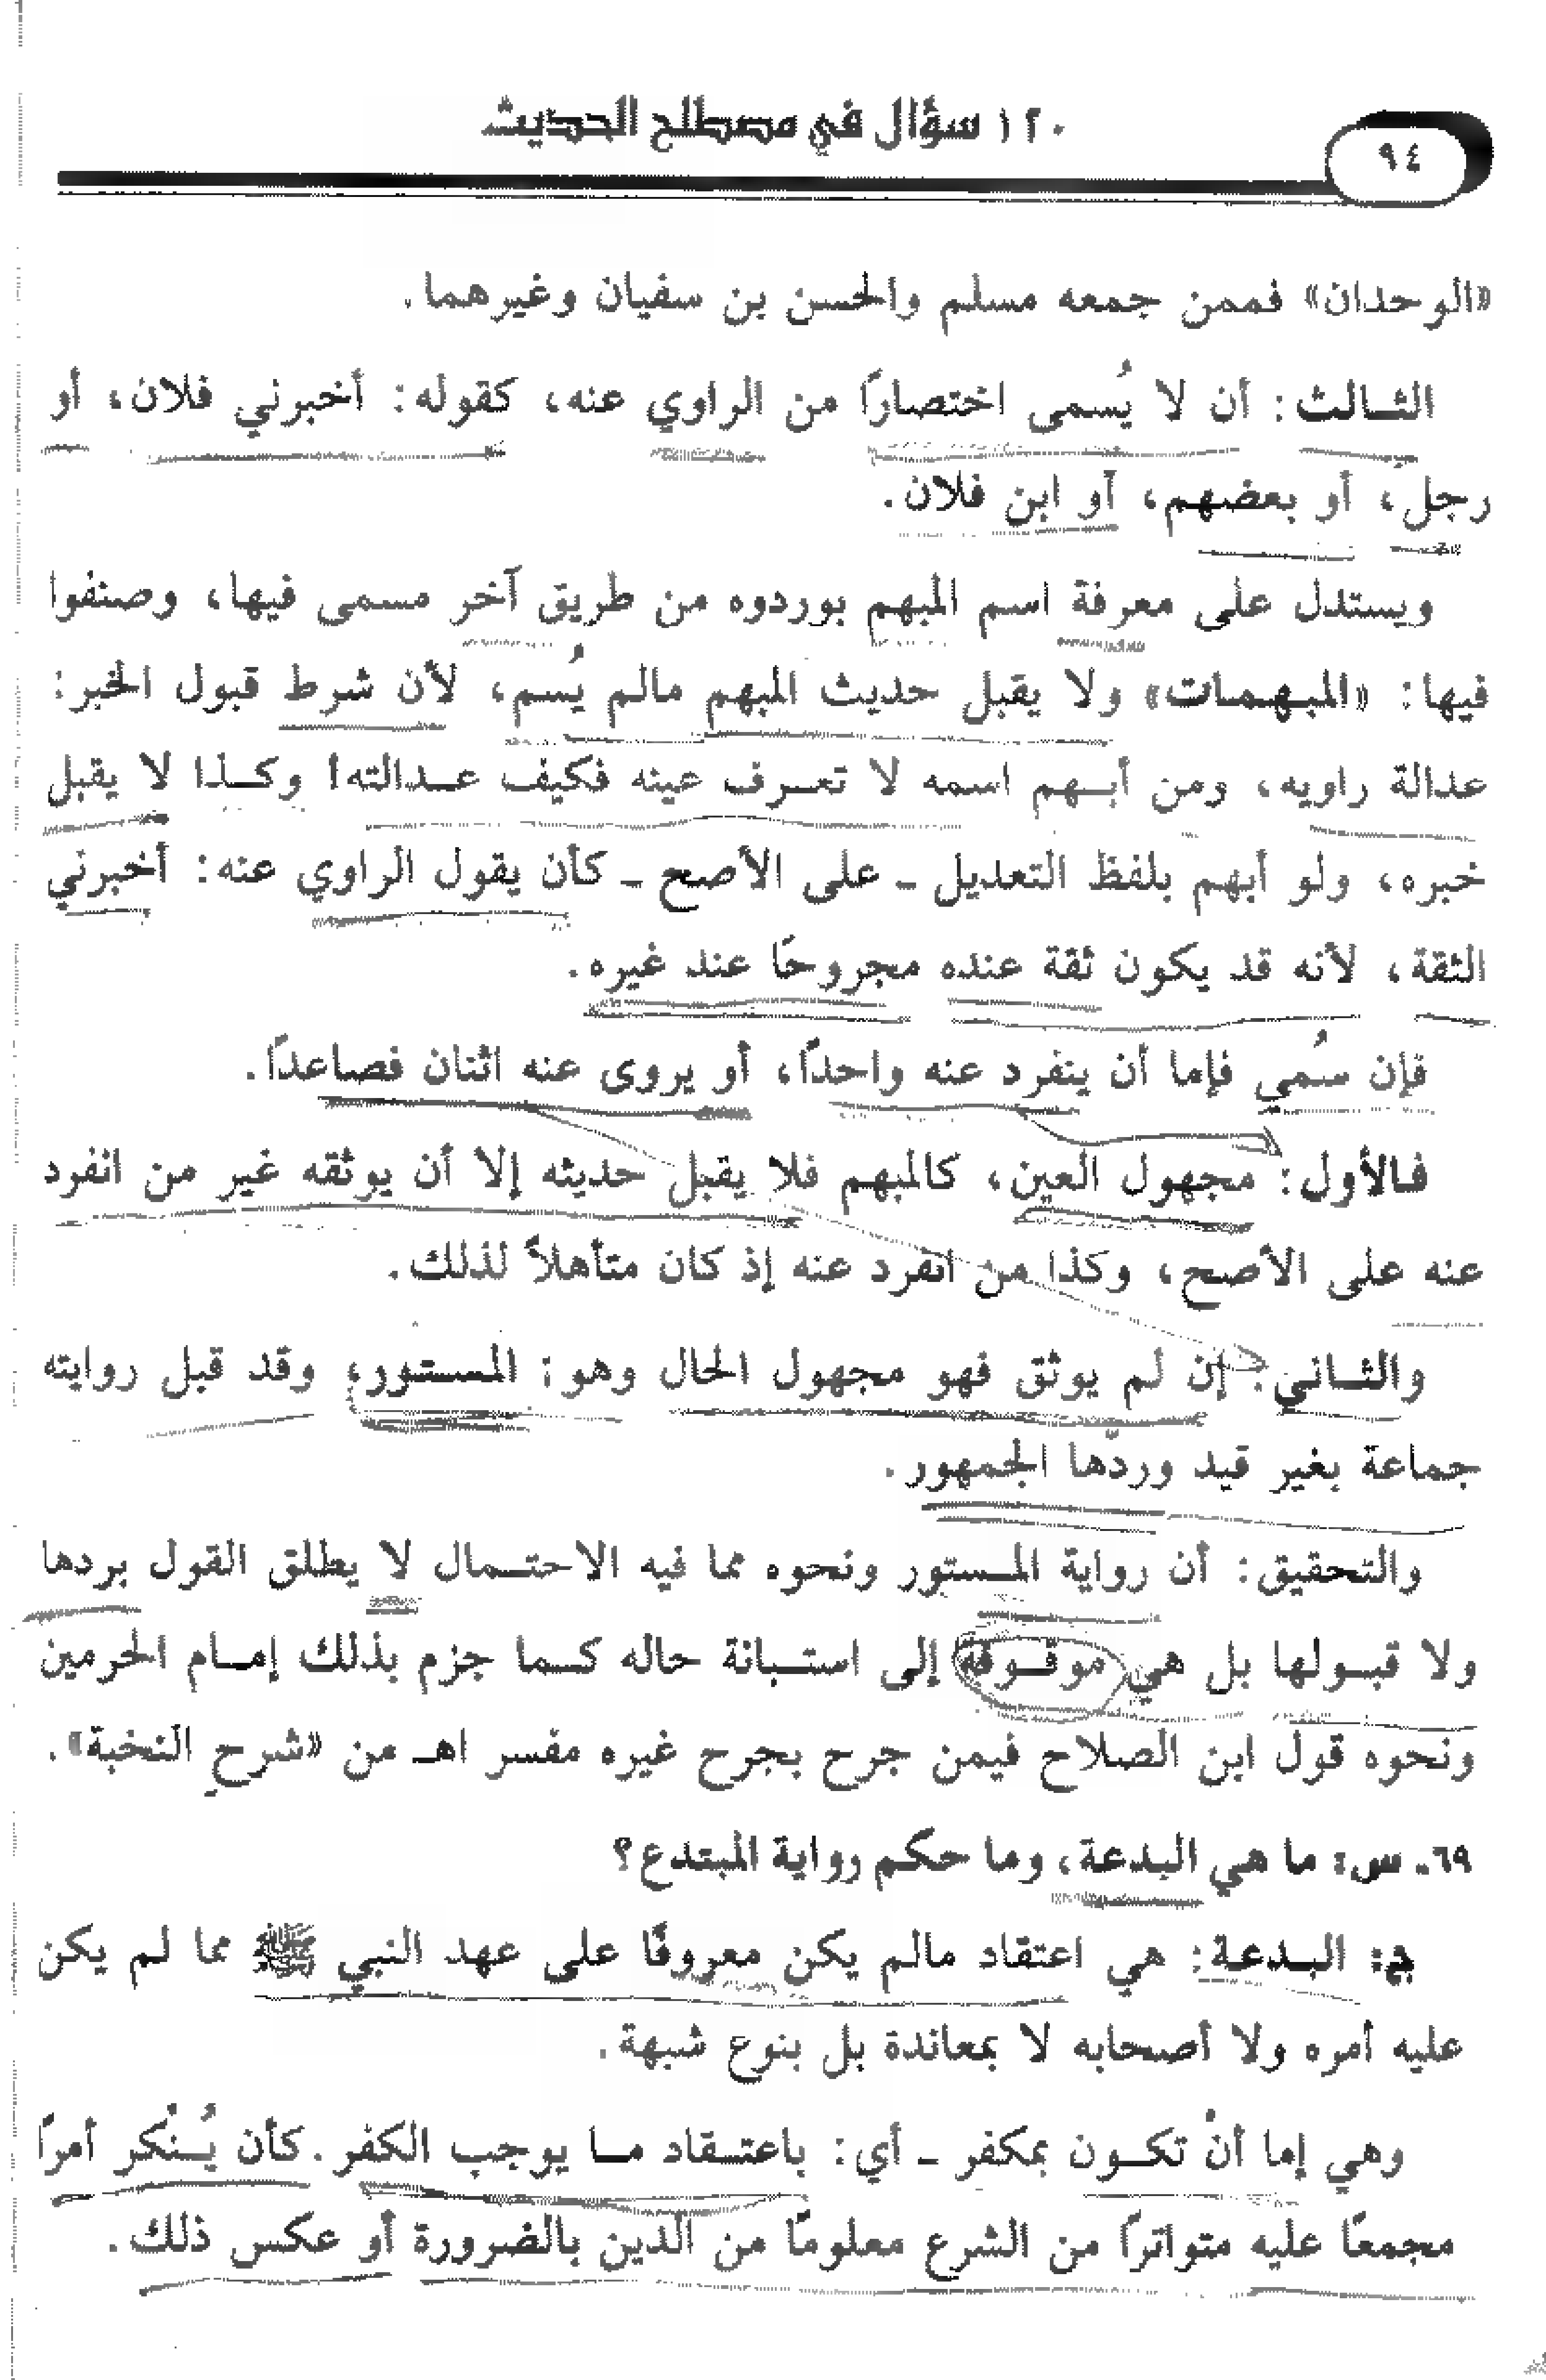 ١٢٠ سؤال في مصطلح الحديث
٩٤
«الوحدان» فممن جمعه مسلم والحسن بن سفيان وغيرهما.
الثالث: أن لا يُسمى اختصارًا من الراوي عنه، كقوله: أخبرني فلان، أو
رجل، أو بعضهم، أو ابن فلان.
ويستدل على معرفة اسم المبهم بوردوه من طريق آخر مسمى فيها، وصنفوا
فيها: «المبهمات» ولا يقبل حديث المبهم مالم يُسم، لأن شرط قبول الخبر:
عدالة راويه، ومن أبهم اسمه لا تعرف عينه فكيف عدالته! وكذا لا يقبل
خبره، ولو أبهم بلفظ التعديل ـ على الأصح ـ كأن يقول الراوي عنه: أخبرني
الثقة، لأنه قد يكون ثقة عنده مجروحًا عند غيره.
فإن سُمي فإما أن ينفرد عنه واحدًا، أو يروى عنه اثنان فصاعدًا.
فالأول: مجهول العين، كالمبهم فلا يقبل حديثه إلا أن يوثقه غير من انفرد
عنه على الأصح، وكذا من انفرد عنه إذ كان متأهلاً لذلك.
والثاني: إن لم يوثق فهو مجهول الحال وهو: المستور، وقد قبل روايته
جماعة بغير قيد وردّها الجمهور.
والتحقيق: أن رواية المستور ونحوه مما فيه الاحتمال لا يطلق القول بردها
ولا قبولها بل هي موقوفة إلى استبانة حاله كما جزم بذلك إمام الحرمين
ونحوه قول ابن الصلاح فيمن جرح بجرح غيره مفسر اهـ من «شرح النخبة».
٦٩ـ س: ما هي البدعة، وما حكم رواية المبتدع؟
ج: البدعة: هي اعتقاد مالم يكن معروفًا على عهد النبي ﷺ مما لم يكن
عليه أمره ولا أصحابه لا بمعاندة بل بنوع شبهة.
وهي إما أنْ تكون بمكفر ـ أي: باعتقاد ما يوجب الكفر. كأن يُنْكر أمرًا
مجمعًا عليه متواترًا من الشرع معلومًا من الدين بالضرورة أو عكس ذلك.